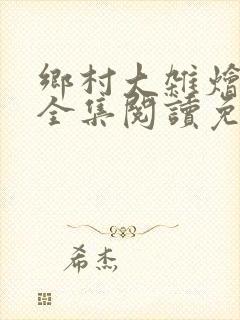 鄉村大雜燴
全集閱讀免
希杰